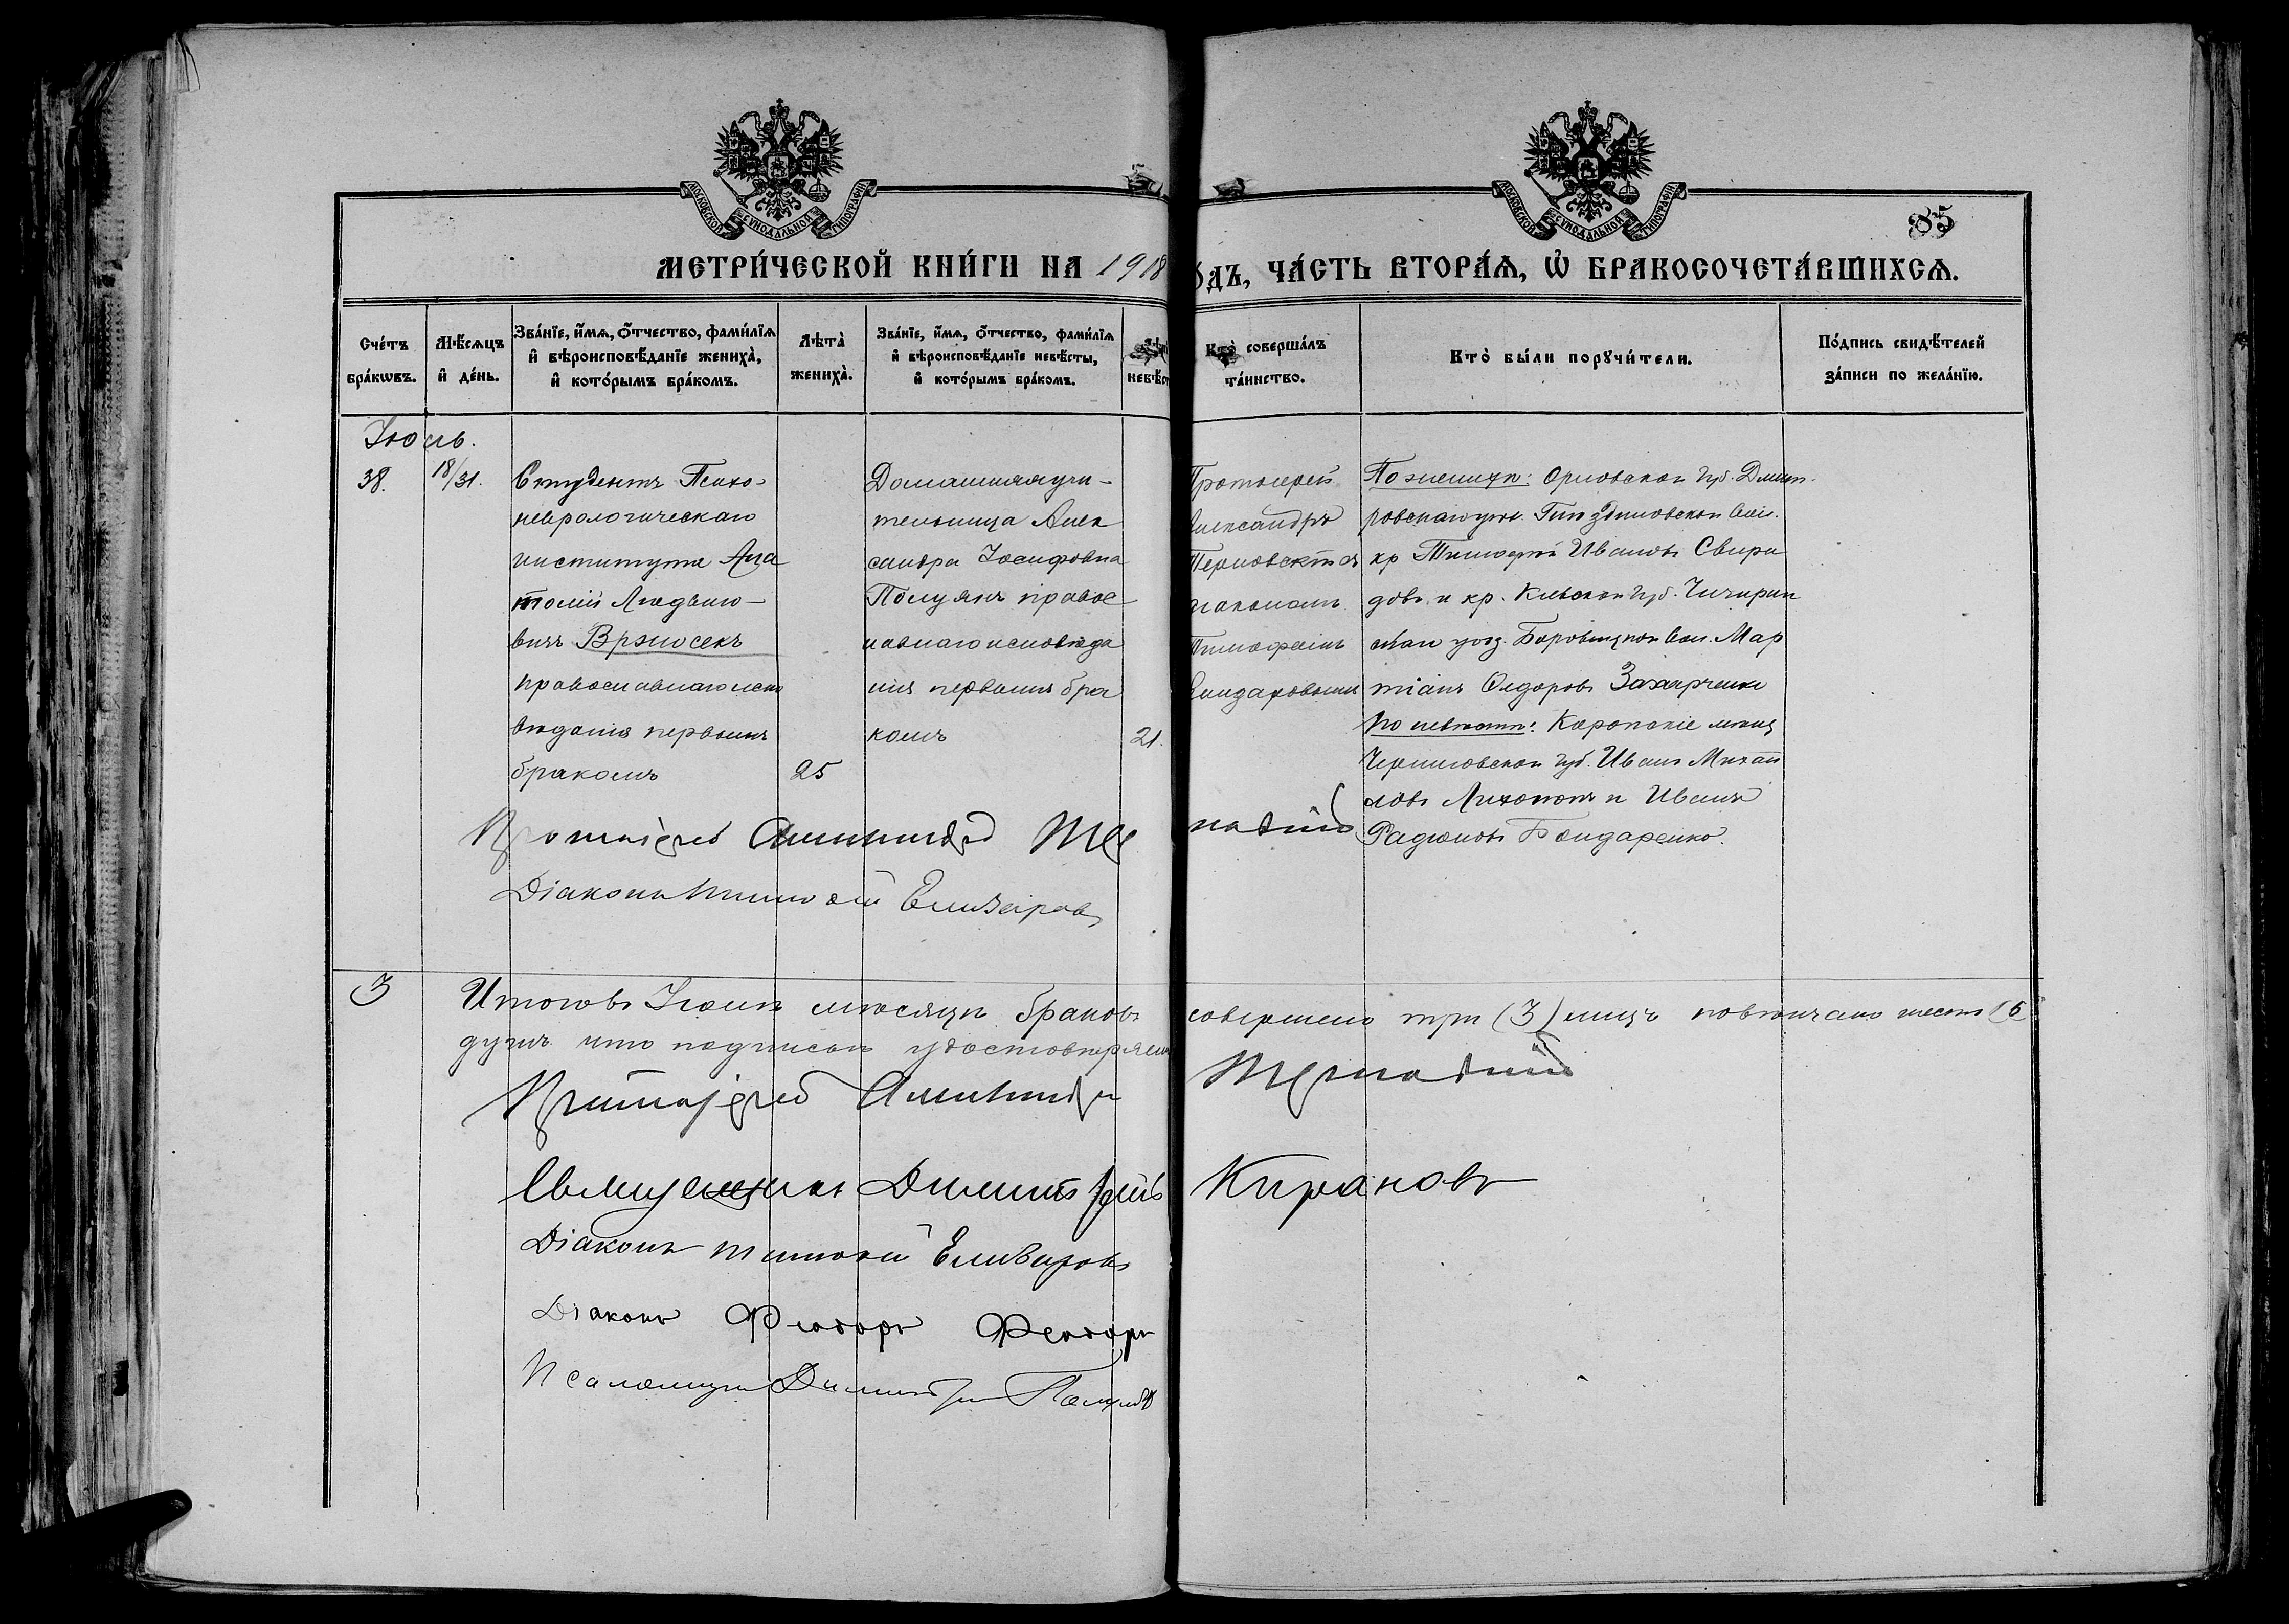 МОСКОВСКОЙ СУНОДАЛЬНОЙ ТИПОГРАФІИ
МОСКОВСКОЙ СУНОДАЛЬНОЙ ТИПОГРАФІИ
85
МЕТРИ́ЧЕСКОЙ КНИ́ГИ НА 1918
О́ДЪ, ЧА́СТЬ ВТОРА́Ѧ, Ѡ҆ БРАКОСОЧЕТА́ВШИХСѦ.
Сче́тъ
бра́кѡвъ.
Мѣ́сѧцъ
и҆ де́нь.
Зва́нїе, и҆́мѧ, ѻ҆́тчество, фами́лїѧ
и҆ вѣроисповѣ́данїе жениха̀,
и҆ кото́рымъ бра́комъ.
Лѣта̀
жениха̀.
Зва́нїе, и҆́мѧ, ѻ҆́тчество, фами́лїѧ
и҆ вѣроисповѣ́данїе невѣ́сты,
и҆ кото́рымъ бра́комъ.
невѣ́ст
Кто̀ соверша́лъ
та́инство.
Кто̀ бы́ли порꙋчи́тели.
По́дпись свидѣ́телей
за́писи по жела́нїю.
Іюль.
38.
18/31.
Студентъ Психо-
неврологическаго
института Ана
толій Людвиго-
вичъ Врэносекъ
православнаго испо
вѣданія первымъ
бракомъ
25
Домашняя учи-
тельница Алек
сандра Іосифовна
Полуянъ правос
лавнаго исповѣда
нія первымъ бра
комъ
21.
Протоіерей
Александръ
Терновскій съ
діакономъ
Тимофеемъ
Елизаровымъ
По женихѣ: Орловской губ. Дмит-
ровскаго уѣз. Гнѣздиловской вол.
кр Тимофей Ивановъ Свири
довъ и кр. Кіевской губ. Чигирин
скаго уѣз. Боровицкой вол. Мар
тіанъ Ѳедоровъ Захарченко
По невѣстѣ: Коропскіе мѣщ
Черниговской губ. Иванъ Михай
ловъ Лихопой и Иванъ
Радіоновъ Бондаренко.
Протоіерей Александръ Тер
новскій
Діаконъ Тимофей Елизаровъ
3
Итого въ Іюлѣ мѣсяцѣ браковъ
совершено три (3) лицъ повѣнчано шесть (6
душъ что подписомъ удостовѣряемъ
Протоіерей Александръ
Терновскій
Священникъ Димитрій
Кирановъ
Діаконъ Тимофей Елизаровъ
Діаконъ Ѳеодоръ
Псаломщикъ Димитрій